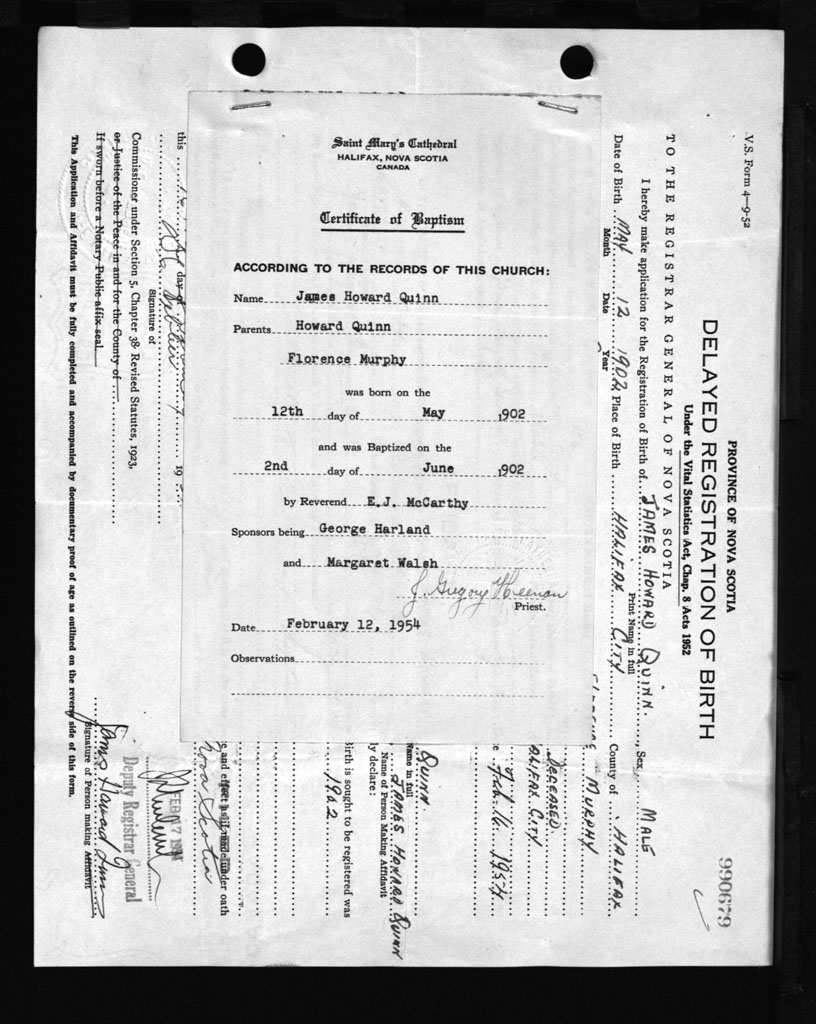 Saint Mary's Cathedral
HALIFAX, NOVA SCOTIA
CANADA
Certificate of Baptism
ACCORDING TO THE RECORDS OF THIS CHURCH:
Name James Howard Quinn
Parents Howard Quinn
Florence Murphy
was born on the
12th day of May 1902
and was Baptized on the
2nd day of June 1902
by Reverend E.J. McCarthy
Sponsors being George Harland
and Margaret Walsh
J. Gregory Keenan
Priest.
Date February 12, 1954
Observations
V.S. Form 4—9-52
990679
PROVINCE OF NOVA SCOTIA
DELAYED REGISTRATION OF BIRTH
Under the Vital Statistics Act, Chap. 8 Acts 1952
TO THE REGISTRAR GENERAL OF NOVA SCOTIA
I hereby make application for the Registration of Birth of JAMES HOWARD QUINN, Sex MALE
Print Name in full
Date of Birth MAY 12 1902 Place of Birth HALIFAX CITY County of HALIFAX
Month Date Year
FLORENCE MURPHY
DECEASED
ALIFAX CITY
e Feb. 16 1954
QUINN
Name in full
JAMES HOWARD QUINN
Name of Person Making Affidavit
ly declare:
birth is sought to be registered was
1902
e and effect as if made under oath
Nova Scotia
this day of 19
Signature of
Commissioner under Section 5, Chapter 38 Revised Statutes, 1923,
or Justice of the Peace in and for the County of
If sworn before a Notary Public affix seal
FEB 17
Deputy Registrar General
James Howard Quinn
Signature of Person making Affidavit
This Application and Affidavit must be fully completed and accompanied by documentary proof of age as outlined on the reverse side of this form.